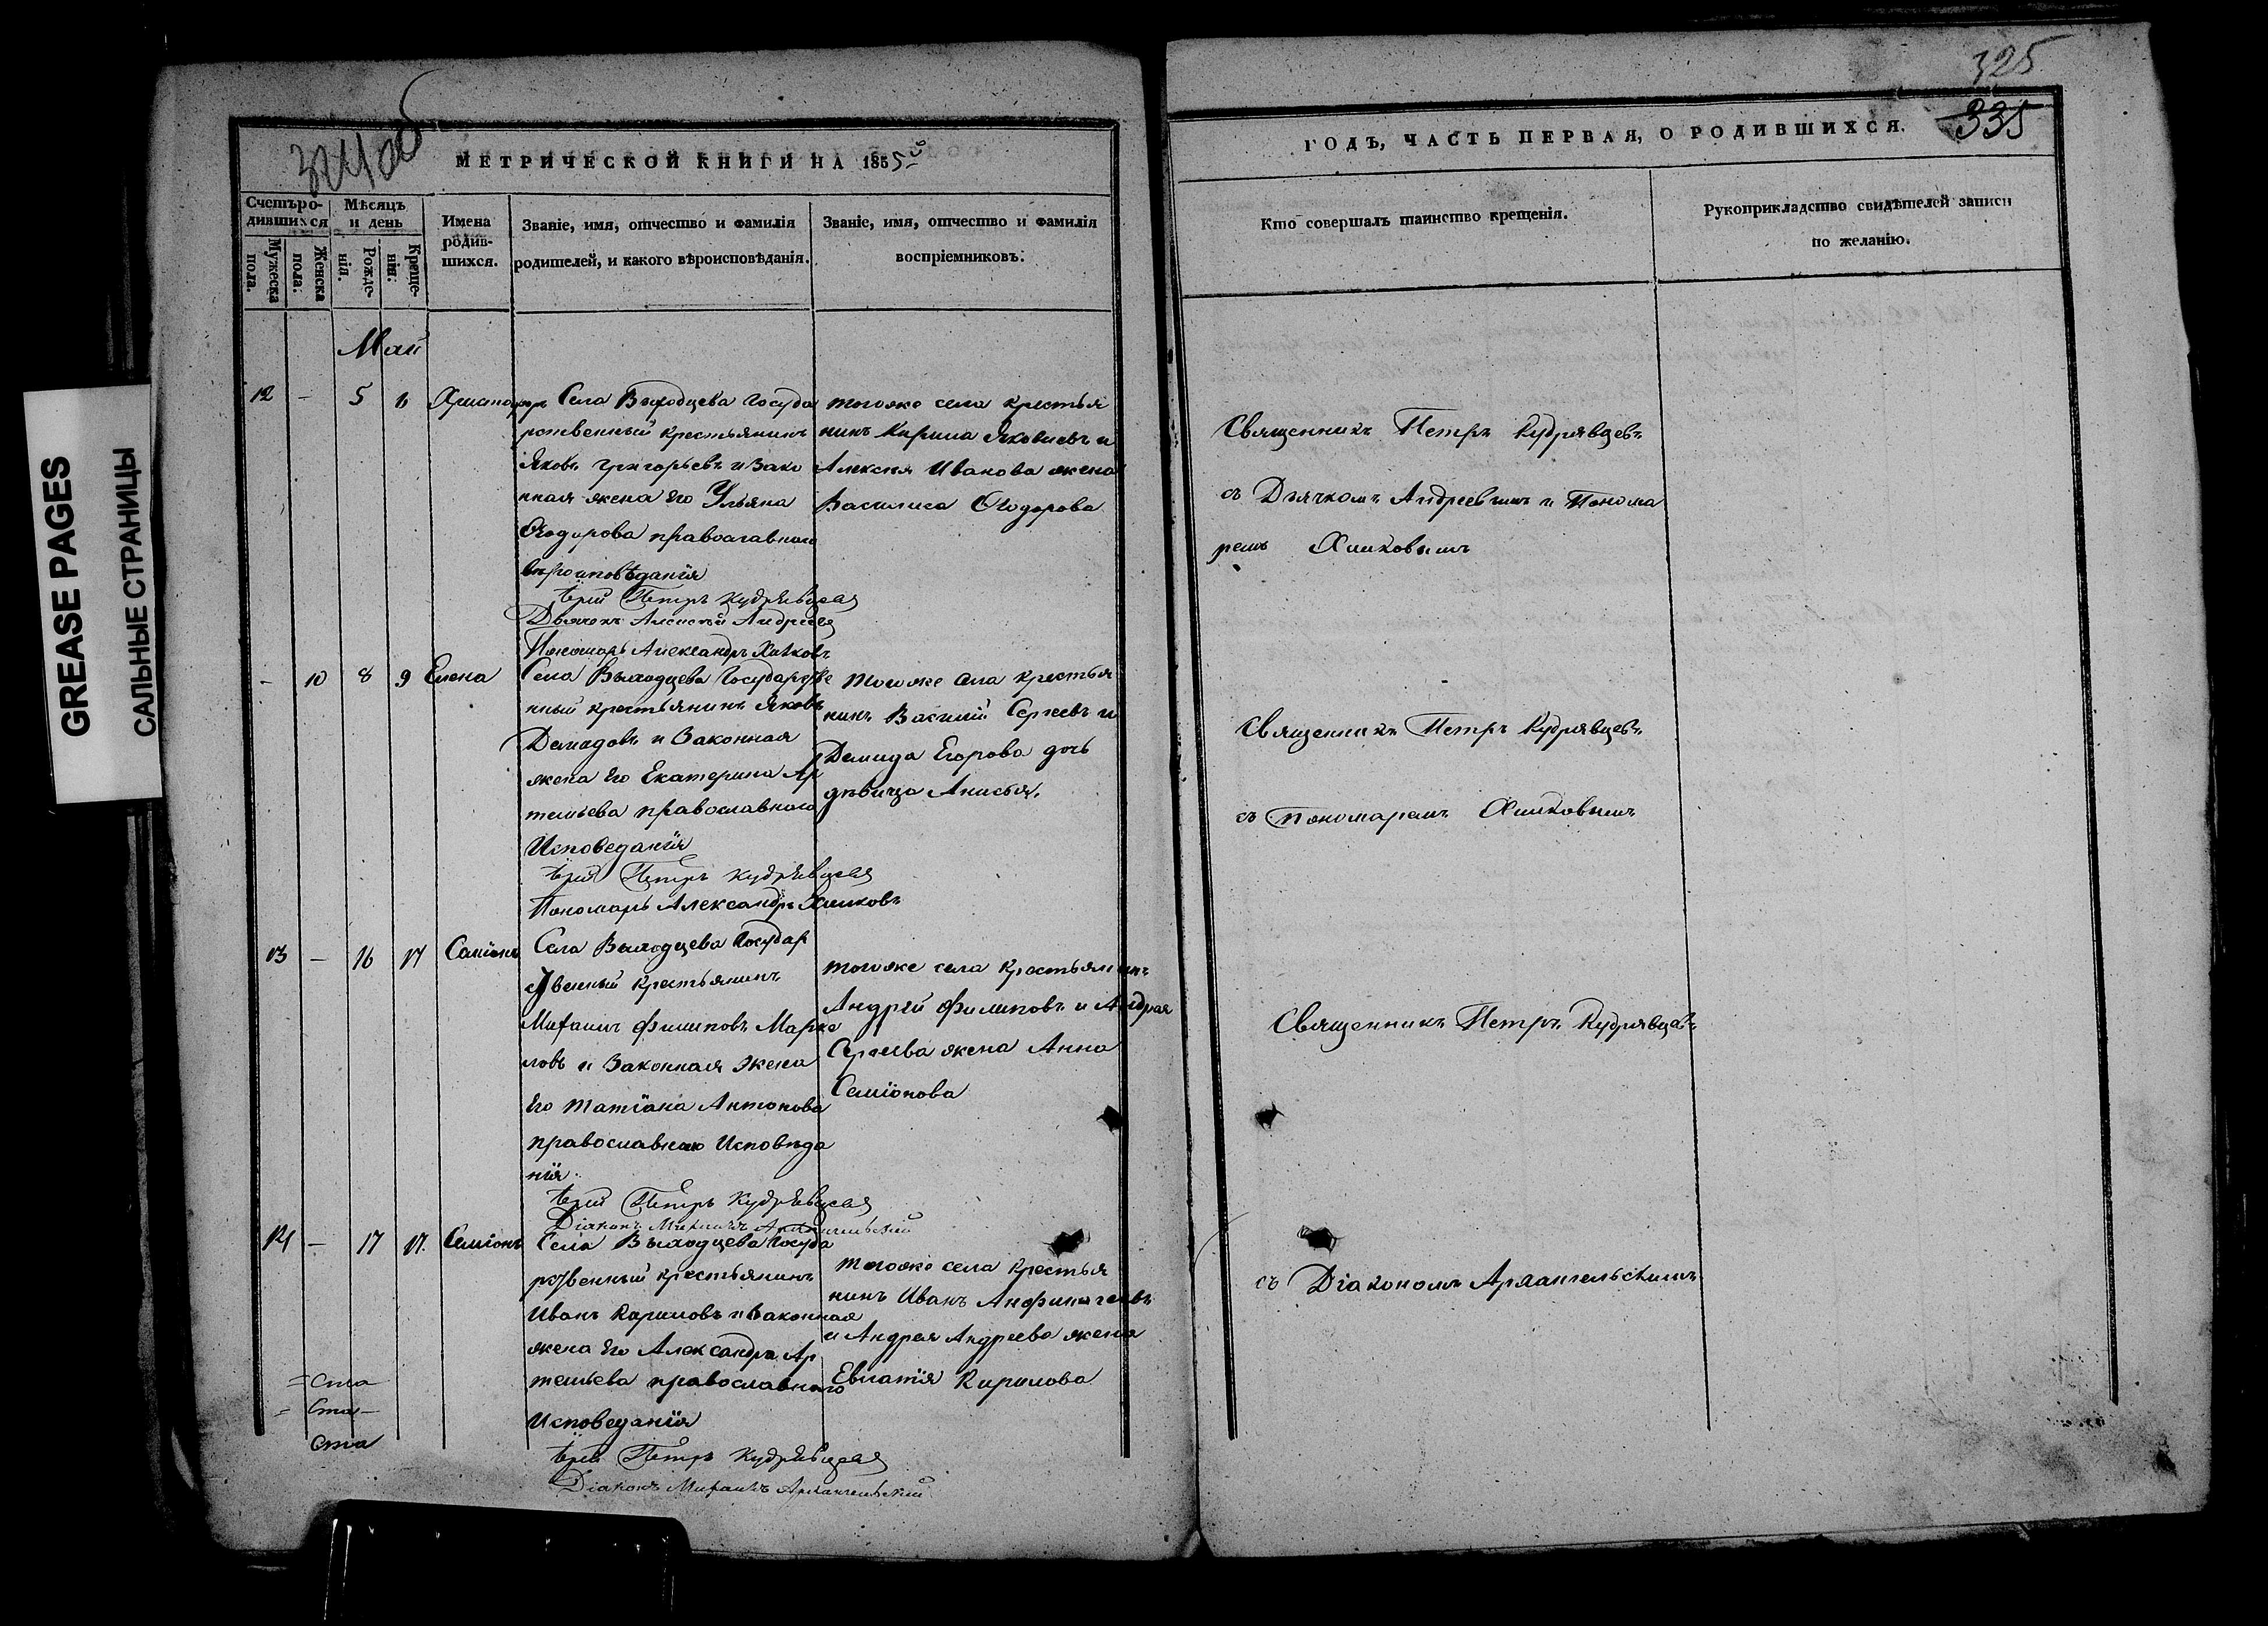 GREASE PAGES
САЛЬНЫЕ СТРАНИЦЫ
МЕТРИЧЕСКОЙ КНИГИ НА 1855
Счетъ ро-
дившихся
Мѣсяцъ
и день
Мужеска
пола.
Женска
пола.
Рожде-
нія.
Креще-
нія.
Имена
родив-
шихся.
Званіе, имя, отчество и фамилія
родителей, и какого вѣроисповѣданія.
Званіе, имя, отчество и фамилія
воспріемниковъ.
Май
12 - 5 6 Села Выходцева Госуда
рственный крестьянинъ
Яковъ Григорьевъ и зако
нная жена его Ульяна
Ѳеодорова православнаго
вероисповѣданія
Іерей Петръ Кудрявцевъ
Дьячекъ Алексѣй Андреевъ
Пономарь Александръ Хилковъ
тогоже села крестья
нинъ Кирила Яковлевъ и
Алексея Иванова жена
Василиса Ѳеодорова
- 10 8 9 Елена
Села Выходцева Государстве
нный крестьянинъ Яковъ
Демидовъ и Законная
жена Его Екатерина Ар
темьева православнаго
Исповеданія
Іерей Петръ Кудрявцевъ
Пономарь Александръ Хилковъ
тогоже села крестья
нинъ Василий Сергеевъ и
Демида Егорова дочь
девица Анисья.
13 - 16 17 Семіонъ
Села Выходцева Государ
ственный крестьянинъ
Михаилъ Филиповъ Марке
ловъ и Законная жена
Его Татіана Антонова
православнаго Исповѣда
нія.
Іерей Петръ Кудрявцевъ
Діаконъ Михаилъ Архангельский
тогоже села Крестьянинъ
Андрей Филиповъ и Андрея
Сергеева жена Анна
Семіонова
14 - 17 17. Семіонъ
Села Выходцева Госуда
рственный крестьянинъ
Иванъ Кириловъ и Законная
жена Его Александра Ар
темьева православнаго
Исповеданія
Іерей Петръ Кудрявцевъ
Діаконъ Михаилъ Архангельский
тогоже села Крестья
нинъ Иванъ
и Андрея Андреева жена
Евлатія Кирилова
325
335
ГОДЪ, ЧАСТЬ ПЕРВАЯ, О РОДИВШИХСЯ.
Кто совершалъ таинство крещенія.
Рукоприкладство свидѣтелей записи
по желанію.
Священникъ Петръ Кудрявцевъ
съ Дьячкомъ Андреевымъ и Понома
ремъ Хилковымъ
Священникъ Петръ Кудрявцевъ
съ Пономаремъ Хилковымъ
Священникъ Петръ Кудрявцевъ
съ Діакономъ Архангельскимъ